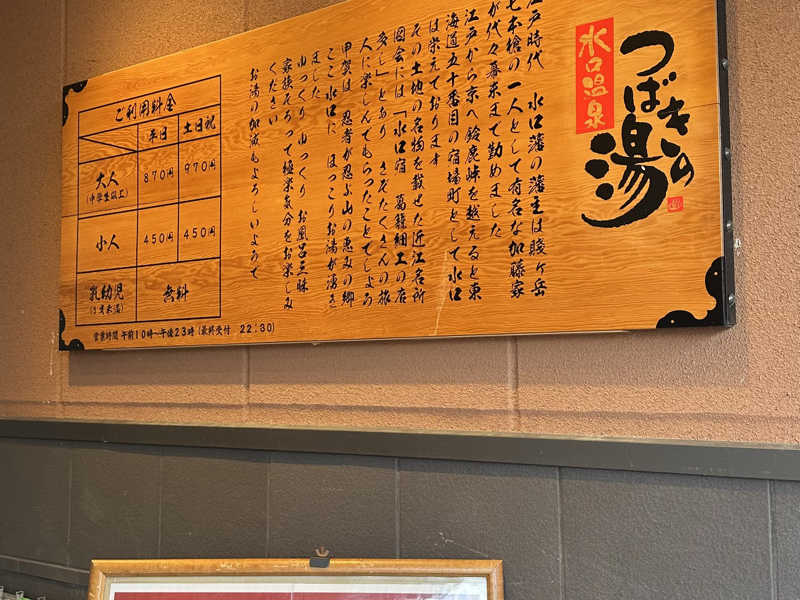 つばきの湯
水口温泉
江戸時代 水口藩の藩主は賤ヶ岳
七本槍の一人として有名な加藤家
が代々幕末まで勤めました
江戸から京へ鈴鹿峠を越えると東
海道五十番目の宿場町として水口
は栄えております
その土地の名物を載せた近江名所
図会には「水口宿 葛籠細工の店
多し」とあり きぞたくさんの旅
人に楽しんでもらったことでしょう
甲賀は 忍者が忍ぶ山の恵みの郷
ここ水口に ほっこりお湯が湧き
ました
ゆっくり ゆっくり お風呂三昧
家族そろって極楽気分をお楽しみ
ください
お湯の加減もよろしいようで
ご利用料金
平日 土日祝
大人 870円 970円
(中学生以上)
小人 450円 450円
乳幼児 無料
(3才未満)
営業時間 午前10時~午後23時(最終受付 22:30)